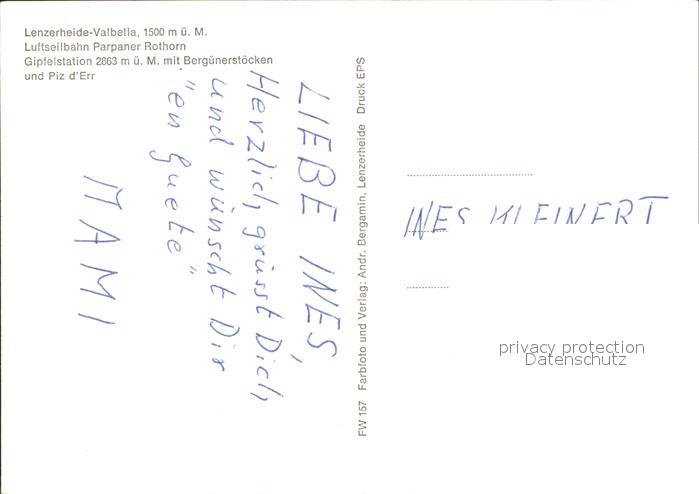 Lenzerheide-Valbella, 1500 m ü. M.
Luftseilbahn Parpaner Rothorn
Gipfelstation 2863 m ü. M. mit Bergünerstöcken
und Piz d'Err
LIEBE INES,
Herzlich grüsst Dich
und wünscht Dir
"en Guete"
MAMI
FW 157 Farbfoto und Verlag: Andr. Bergamin, Lenzerheide Druck EPS
INES KLEINERT
privacy protection
Datenschutz